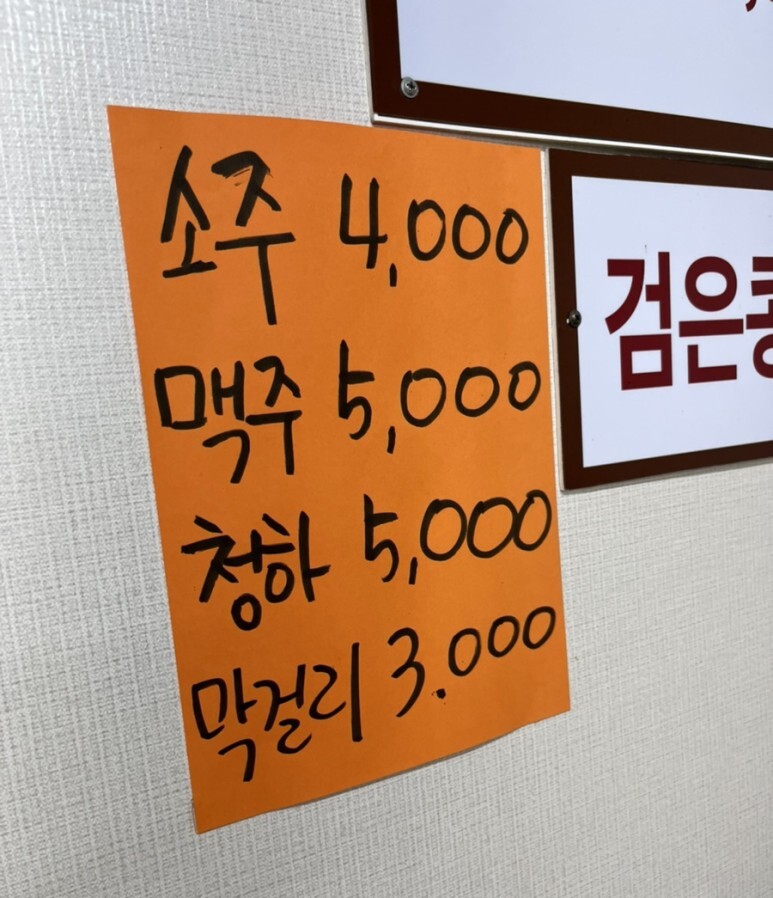 소주 4,000
맥주 5,000
청하 5,000
막걸리 3.000
검은콩